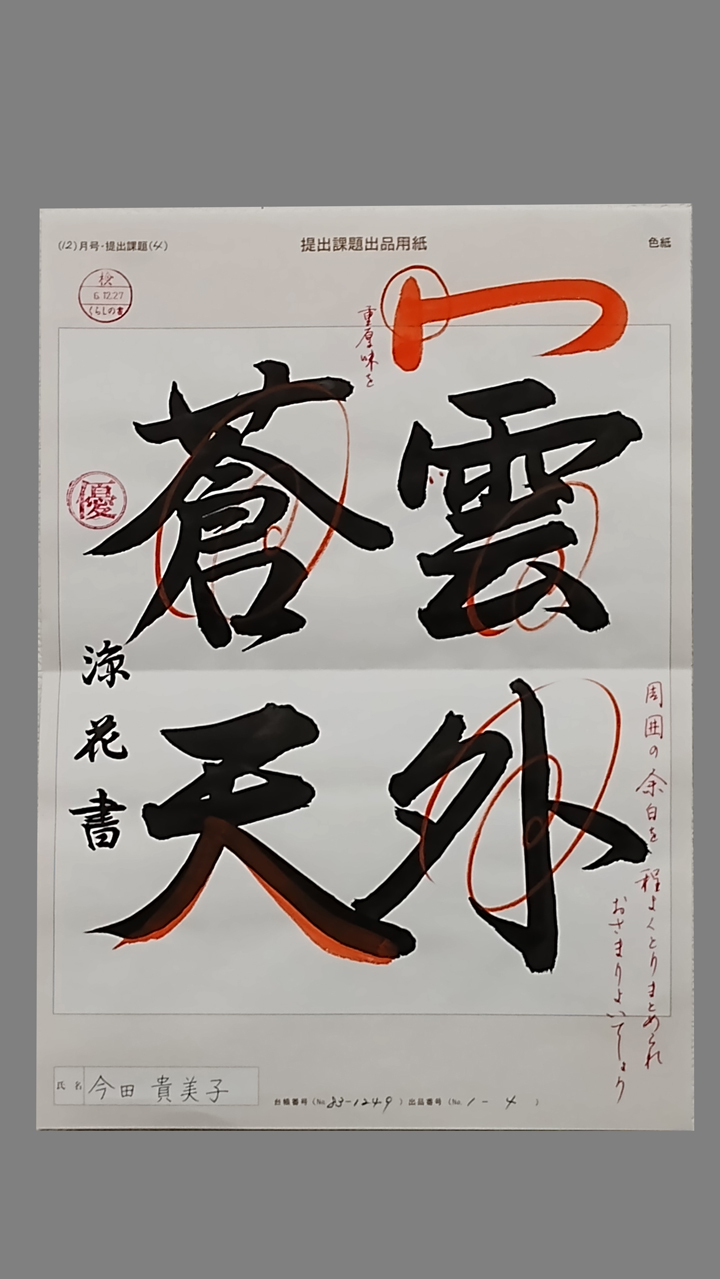 (12)月号・提出課題(4)
提出課題出品用紙
色紙
検
6.12.27
くらしの書
重厚味を
雲外
蒼天
優
涼花書
周囲の余白を程よくとりまとめられ
おさまりよいでしょう
氏名 今田貴美子
台帳番号(No.83-1249)出品番号(No.1-4)